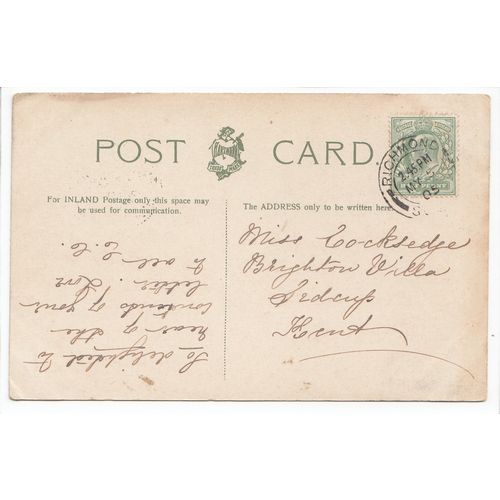 POST CARD.
HARTMANN
TRADE MARK
RICHMOND
2.45 PM
MY 5
05
For INLAND Postage only this space may
be used for communication.
The ADDRESS only to be written here.
So delighted to
hear of the
contents of your
letter. Love
to all C.C.
Miss Cocksedge
Brighton Villa
Sidcup
Kent